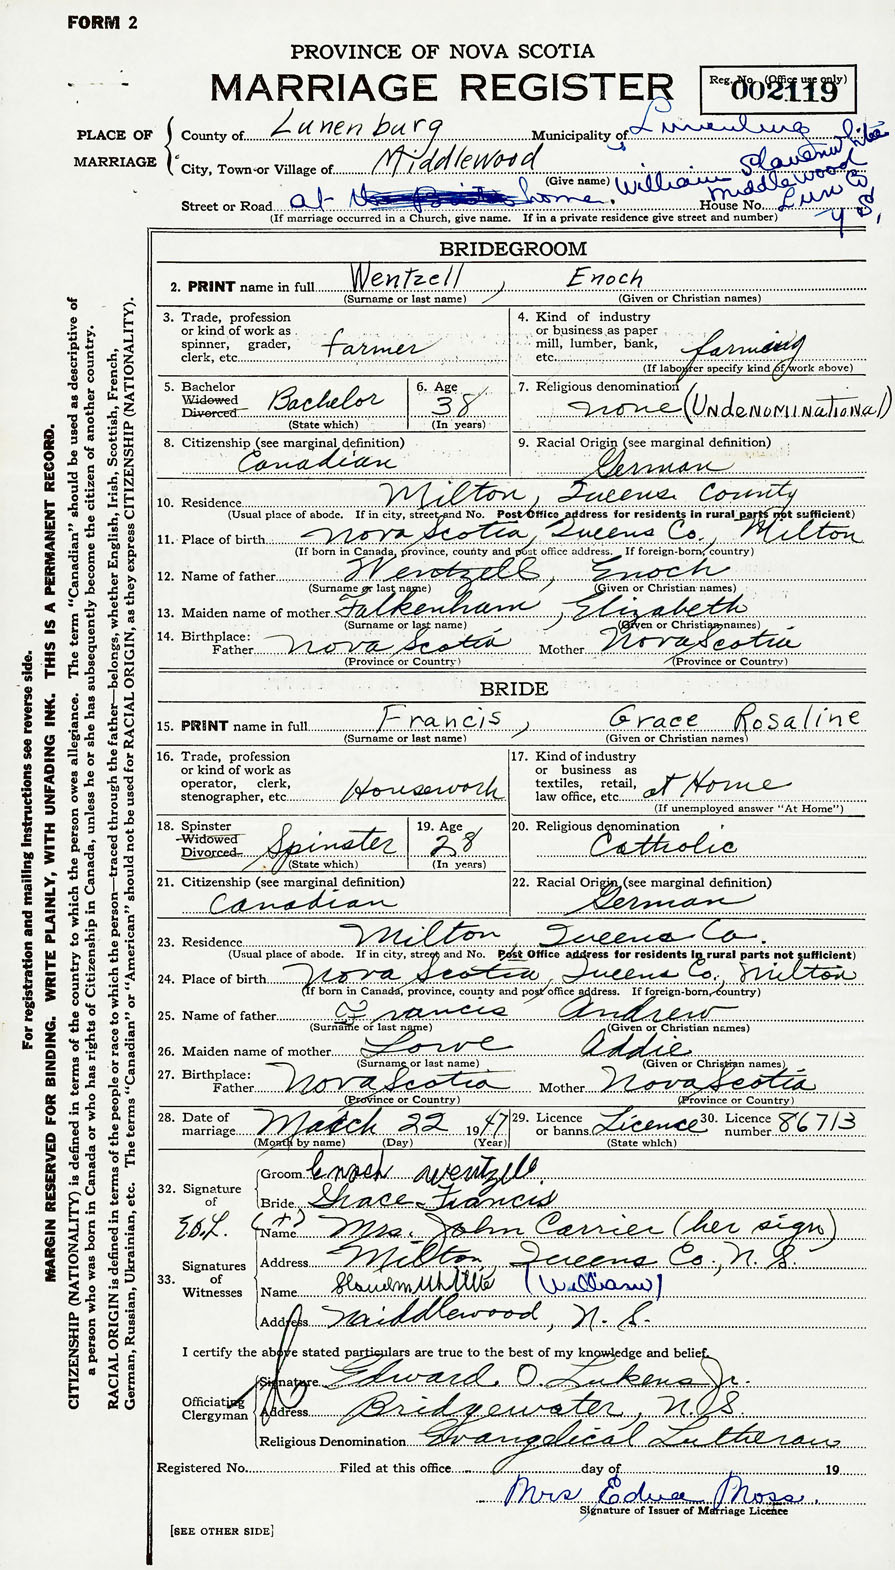 FORM 2
PROVINCE OF NOVA SCOTIA
MARRIAGE REGISTER
Reg. No. (Office use only)
002119
PLACE OF MARRIAGE
County of Lunenburg Municipality of Lunenburg
City, Town or Village of Middlewood
(Give name) William Slauenwhite
Middlewood
Street or Road at home. House No. Lun Co
N S,
(If marriage occurred in a Church, give name. If in a private residence give street and number)
BRIDEGROOM
2. PRINT name in full Wentzell, Enoch
(Surname or last name) (Given or Christian names)
3. Trade, profession or kind of work as spinner, grader, clerk, etc. farmer
4. Kind of industry or business as paper mill, lumber, bank, etc. farming
(If laborer specify kind of work above)
5. Bachelor Widowed Divorced Bachelor
(State which)
6. Age 38
(In years)
7. Religious denomination none (Undenominational)
8. Citizenship (see marginal definition) Canadian
9. Racial Origin (see marginal definition) German
10. Residence Milton, Queens County
(Usual place of abode. If in city, street and No. Post Office address for residents in rural parts not sufficient)
11. Place of birth Nova Scotia, Queens Co., Milton
(If born in Canada, province, county and post office address. If foreign-born, country)
12. Name of father Wentzell, Enoch
(Surname or last name) (Given or Christian names)
13. Maiden name of mother Falkenham, Elizabeth
(Surname or last name) (Given or Christian names)
14. Birthplace:
Father Nova Scotia Mother Nova Scotia
(Province or Country) (Province or Country)
BRIDE
15. PRINT name in full Francis, Grace Rosaline
(Surname or last name) (Given or Christian names)
16. Trade, profession or kind of work as operator, clerk, stenographer, etc. Housework
17. Kind of industry or business as textiles, retail, law office, etc. at Home
(If unemployed answer "At Home")
18. Spinster Widowed Divorced Spinster
(State which)
19. Age 28
(In years)
20. Religious denomination Catholic
21. Citizenship (see marginal definition) Canadian
22. Racial Origin (see marginal definition) German
23. Residence Milton, Queens Co.
(Usual place of abode. If in city, street and No. Post Office address for residents in rural parts not sufficient)
24. Place of birth Nova Scotia, Queens Co., Milton
(If born in Canada, province, county and post office address. If foreign-born, country)
25. Name of father Francis Andrew
(Surname or last name) (Given or Christian names)
26. Maiden name of mother Lowe Addie
(Surname or last name) (Given or Christian names)
27. Birthplace:
Father Nova Scotia Mother Nova Scotia
(Province or Country) (Province or Country)
28. Date of marriage March 22 1947
(Month by name) (Day) (Year)
29. Licence or banns Licence
(State which)
30. Licence number 86713
32. Signature of
Groom Enoch Wentzell
Bride Grace Francis
E.O.L. (+)
33. Signatures of Witnesses
Name Mrs. John Carrier (her sign)
Address Milton, Queens Co., N. S.
Name Slauenwhite (William)
Address Middlewood, N. S.
I certify the above stated particulars are true to the best of my knowledge and belief.
Officiating Clergyman
Signature Edward O. Lukens Jr.
Address Bridgewater, N. S.
Religious Denomination Evangelical Lutheran
Registered No. Filed at this office day of 19
Mrs Edna Moss.
Signature of Issuer of Marriage Licence
[SEE OTHER SIDE]
For registration and mailing Instructions see reverse side.
MARGIN RESERVED FOR BINDING. WRITE PLAINLY, WITH UNFADING INK. THIS IS A PERMANENT RECORD.
CITIZENSHIP (NATIONALITY) is defined in terms of the country to which the person owes allegiance. The term "Canadian" should be used as descriptive of
a person who was born in Canada or who has rights of Citizenship in Canada, unless he or she has subsequently become the citizen of another country.
RACIAL ORIGIN is defined in terms of the people or race to which the person—traced through the father—belongs, whether English, Irish, Scottish, French,
German, Russian, Ukrainian, etc. The terms "Canadian" or "American" should not be used for RACIAL ORIGIN, as they express CITIZENSHIP (NATIONALITY).